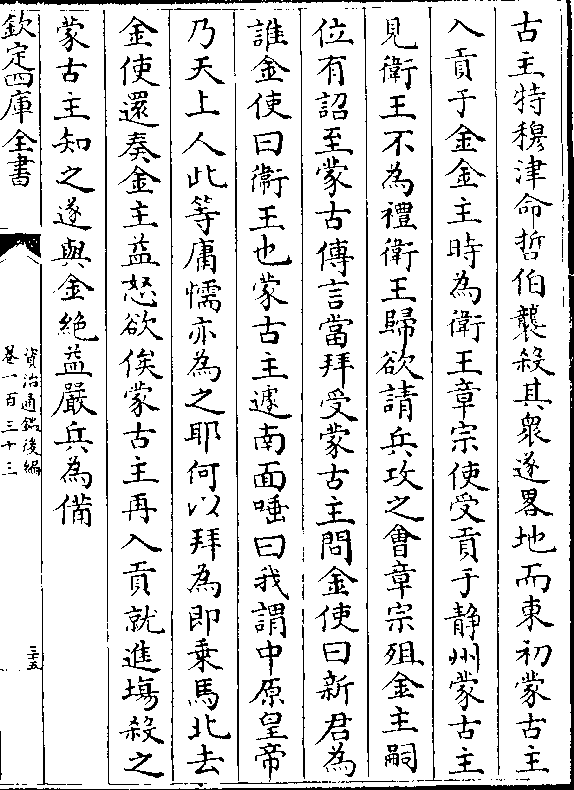 古主特穆津命哲伯襲殺其衆遂畧地而東初蒙古主
入貢于金金主時為衛王章宗使受貢于靜州蒙古主
見衛王不為禮衛王歸欲請兵攻之會章宗殂金主嗣
位有詔至蒙古傳言當拜受蒙古主問金使曰新君為
誰金使曰衛王也蒙古主遽南面唾曰我謂中原皇帝
乃天上人此等庸懦亦為之耶何以拜為即乗馬北去
金使還奏金主益怒欲俟蒙古主再入貢就進塲殺之
蒙古主知之遂與金絶益嚴兵為備
欽定四庫全書
資治通鑑後編
卷一百三十三
三十五